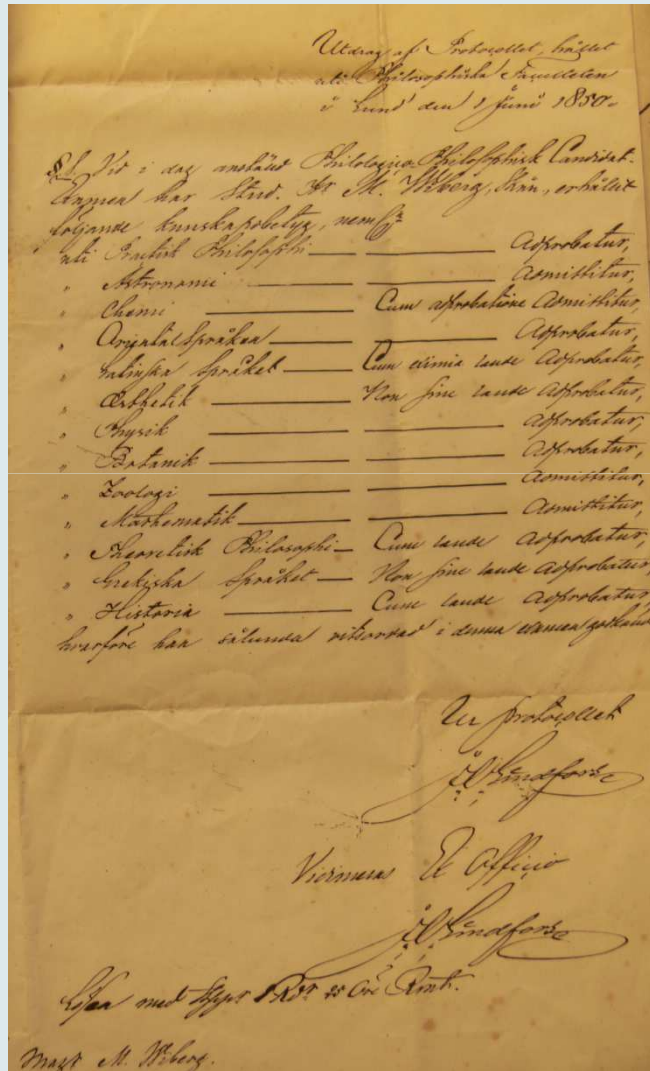 Utdrag af Protocollet, hållet
uti Philosophiska Faculteten
i Lund den 1 Juni 1850.
§1. Vid i dag anstäld Philologico-Philosophisk Candidat-
Examen har Stud. Fr M. Wiberg, Skån., erhållit
följande kunskapsbetyg, neml:
uti Practisk Philosophi — — Approbatur,
" Astronomi — — Admittitur,
" Chemi — Cum approbatione Admittitur,
" Orientalspråken — — Approbatur,
" Latinska Språket — Cum eximia laude Approbatur,
" Æsthetik — Non sine laude Approbatur,
" Physik — — Approbatur,
" Botanik — — Approbatur,
" Zoologi — — Admittitur,
" Mathematik — — Admittitur,
" Theoretisk Philosophi — Cum laude Approbatur,
" Grekiska Språket — Non sine laude Approbatur,
" Historia — Cum laude Approbatur,
hvarföre han sålunda vitsordad i denna examen godkänd
Ur protocollet
Lindfors
Vidimeras Ex Officio
Lindfors
Lösen med 1 Rdr 25 Öre Rmt.
M. Wiberg.